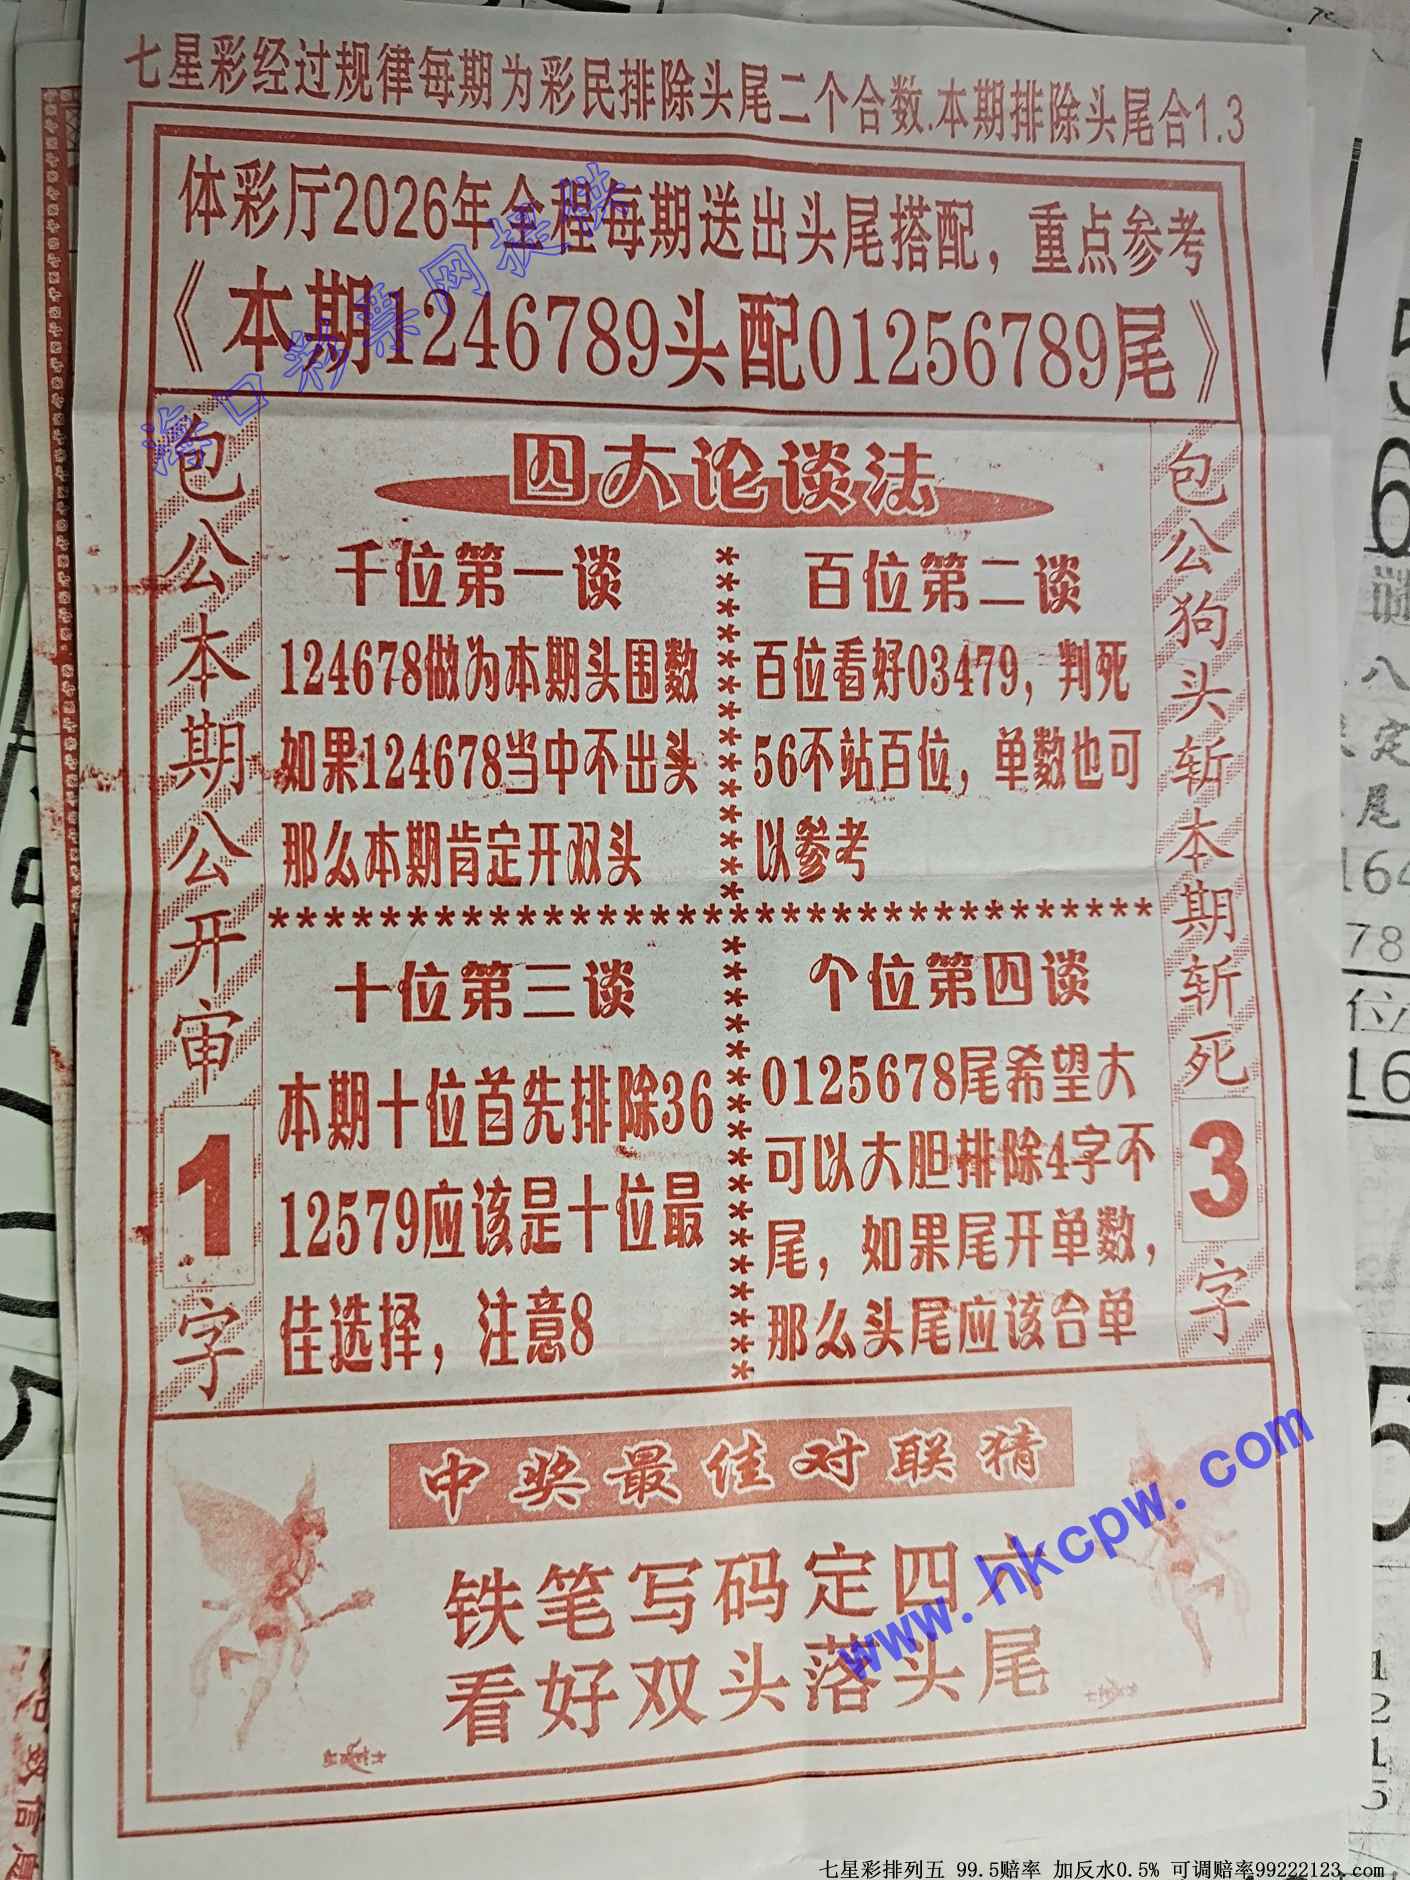 七星彩经过规律每期为彩民排除头尾二个合数.本期排除头尾合1.3
体彩厅2026年全程每期送出头尾搭配，重点参考
《本期1246789头配01256789尾》
海口彩票网提供
包公本期公开审1字
四大论谈法
千位第一谈
124678做为本期头围数
如果124678当中不出头
那么本期肯定开双头
百位第二谈
百位看好03479，判死
56不站百位，单数也可
以参考
十位第三谈
本期十位首先排除36
12579应该是十位最
佳选择，注意8
个位第四谈
0125678尾希望大
可以大胆排除4字不
尾，如果尾开单数，
那么头尾应该合单
包公狗头斩本期斩死3字
中奖最佳对联猜
铁笔写码定四六
看好双头落头尾
www.hkcpw.com
七星彩排列五 99.5赔率 加反水0.5% 可调赔率99222123.com